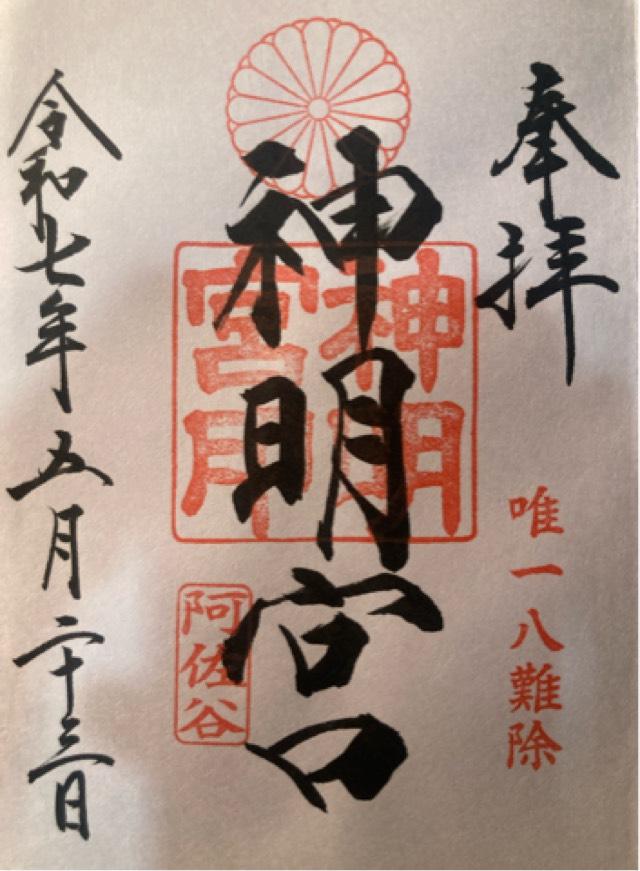 奉拝
唯一八難除
神明宮
神明
宮用
阿佐谷
令和七年五月二十三日